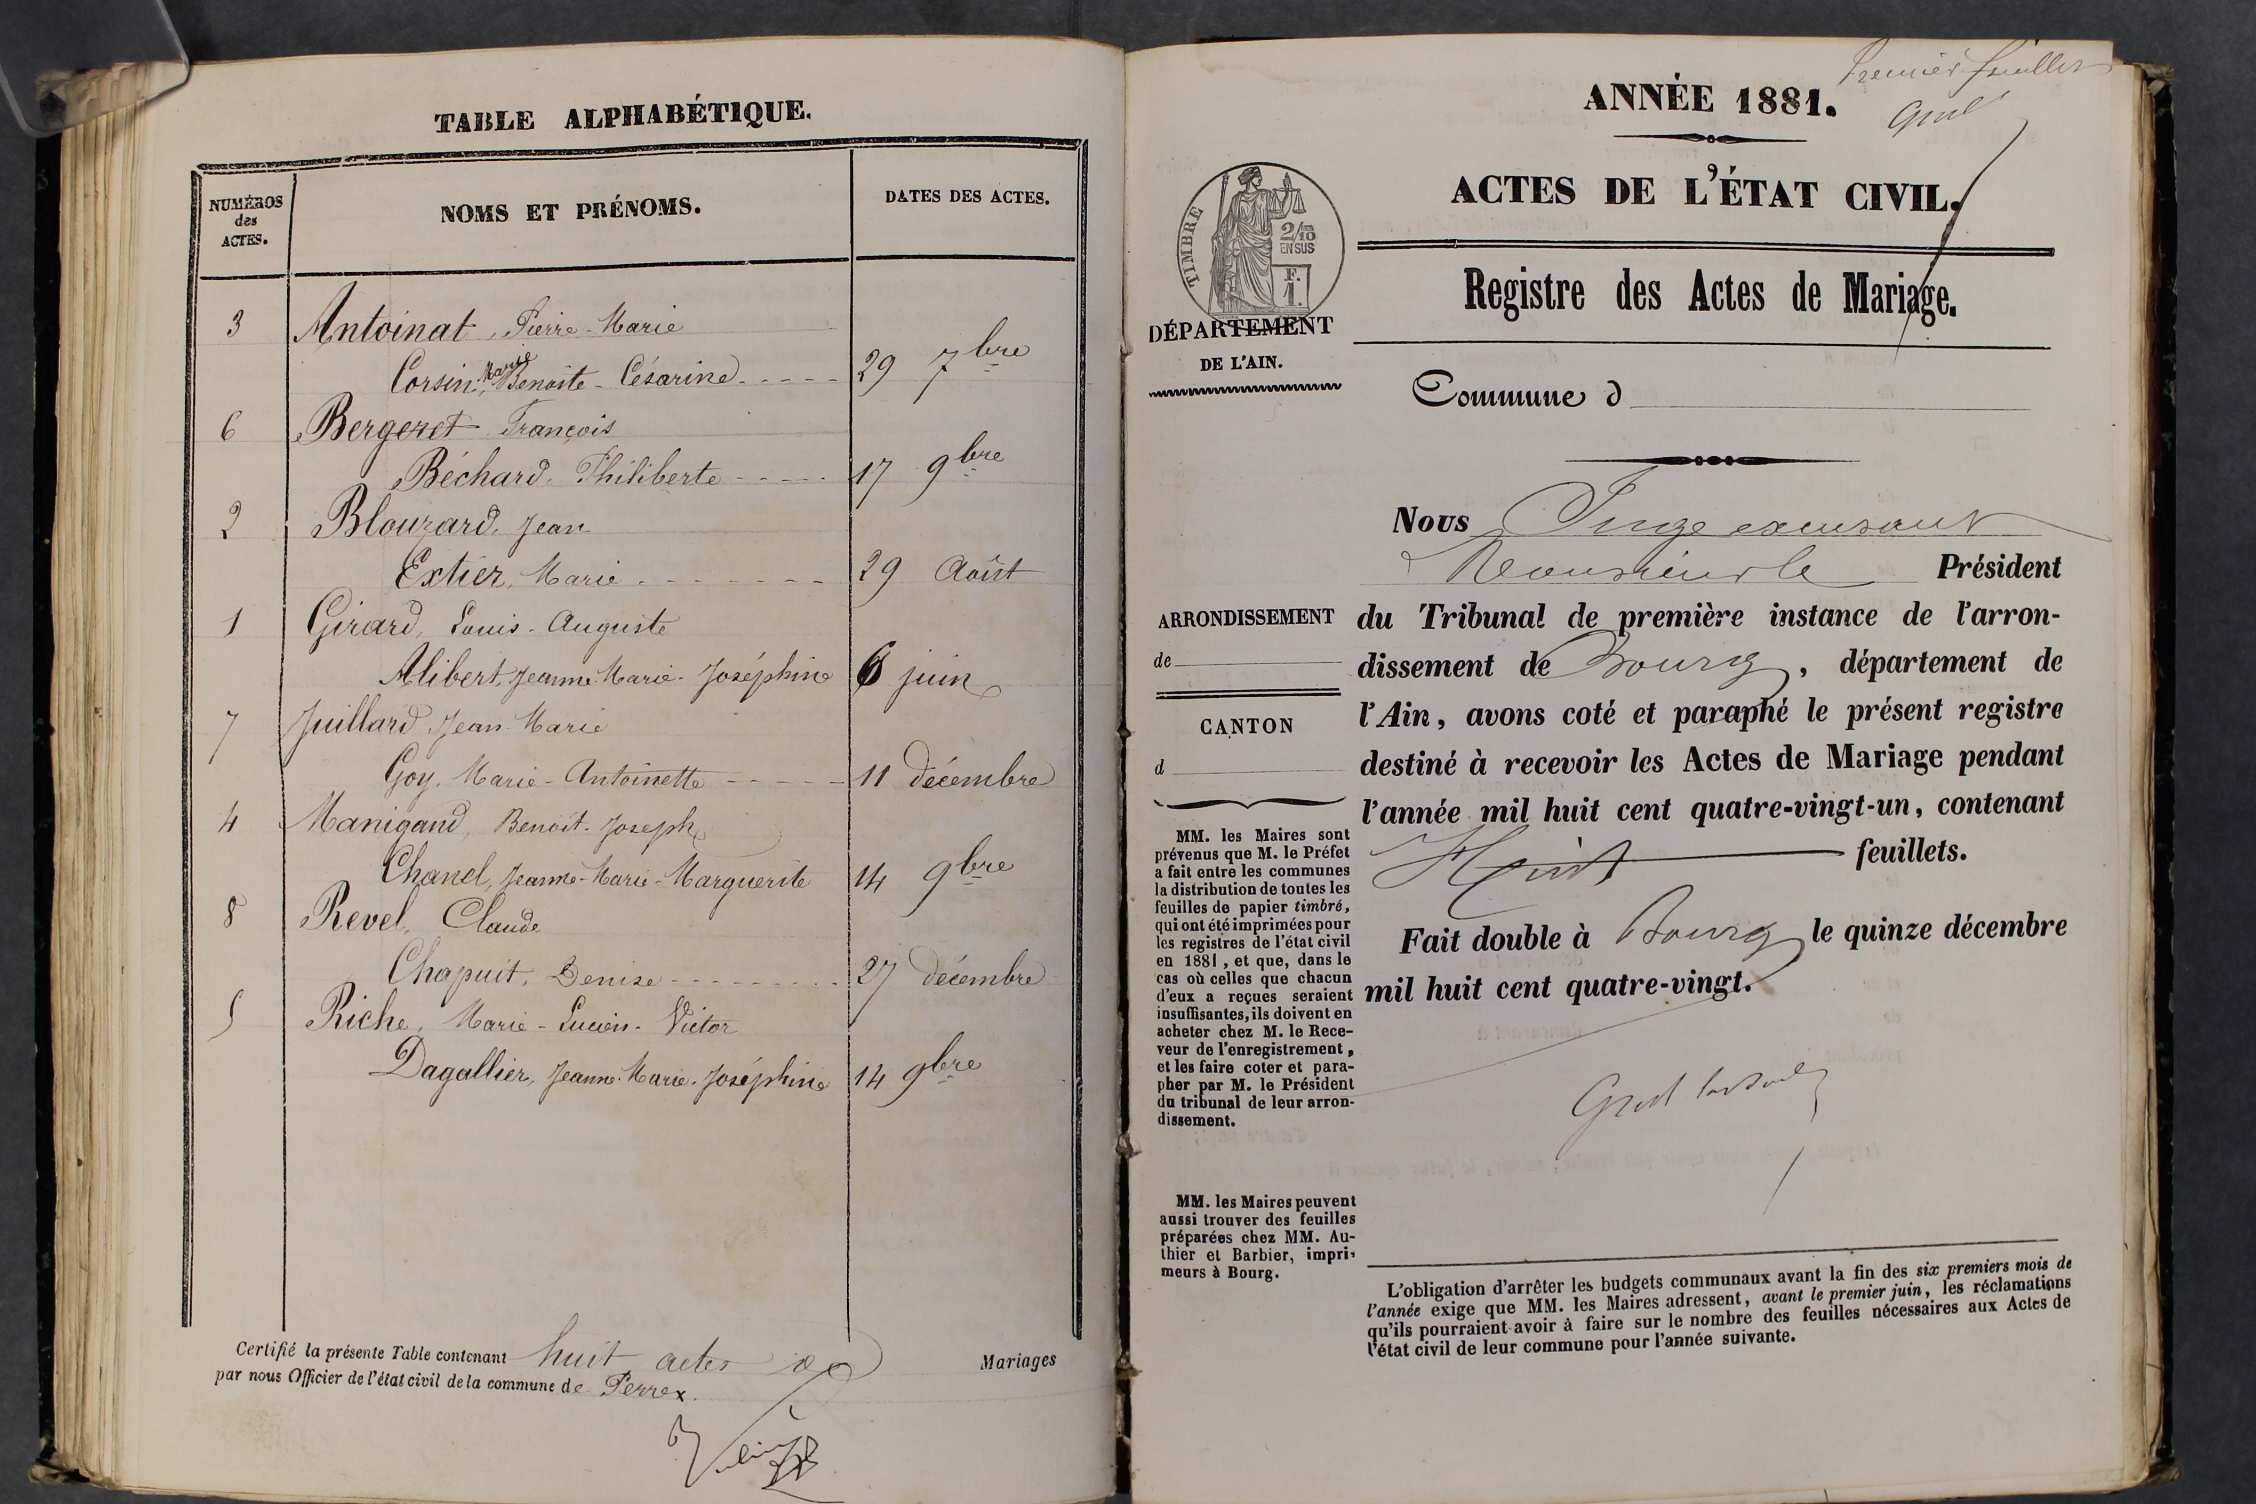 TABLE ALPHABÉTIQUE.
NUMÉROS
des
ACTES.
NOMS ET PRÉNOMS.
DATES DES ACTES.
3 Antoinat, Pierre-Marie
Corsin, Marie Benoite-Césarine 29 7bre
6 Bergeret François
Béchard, Philiberte 17 9bre
2 Blouzard, Jean
Extier, Marie 29 Août
1 Girard, Louis-Auguste
Alibert, Jeanne-Marie-Joséphine 6 juin
7 Juillard Jean-Marie
Goy, Marie-Antoinette 11 décembre
4 Manigand, Benoit-Joseph
Chanel, Jeanne-Marie-Marguerite 14 9bre
8 Revel, Claude
Chapuit, Denise 27 décembre
5 Riche, Marie-Lucien-Victor
Dagallier, Jeanne-Marie-Joséphine 14 9bre
Certifié la présente Table contenant huit actes de Mariages
par nous Officier de l'état civil de la commune de Perrex.
Premier feuillet
ANNÉE 1881.
ACTES DE L'ÉTAT CIVIL.
TIMBRE
2/10
EN SUS
F.
1.
Registre des Actes de Mariage.
DÉPARTEMENT
DE L'AIN.
Commune d
Nous Juge
Monsieur le Président
ARRONDISSEMENT
de
CANTON
d
du Tribunal de première instance de l'arron-
dissement de Bourg, département de
l'Ain, avons coté et paraphé le présent registre
destiné à recevoir les Actes de Mariage pendant
l'année mil huit cent quatre-vingt-un, contenant
Huit feuillets.
Fait double à Bourg le quinze décembre
mil huit cent quatre-vingt.
MM. les Maires sont
prévenus que M. le Préfet
a fait entre les communes
la distribution de toutes les
feuilles de papier timbré,
qui ont été imprimées pour
les registres de l'état civil
en 1881, et que, dans le
cas où celles que chacun
d'eux a reçues seraient
insuffisantes, ils doivent en
acheter chez M. le Rece-
veur de l'enregistrement,
et les faire coter et para-
pher par M. le Président
du tribunal de leur arron-
dissement.
MM. les Maires peuvent
aussi trouver des feuilles
préparées chez MM. Au-
thier et Barbier, impri-
meurs à Bourg.
L'obligation d'arrêter les budgets communaux avant la fin des six premiers mois de
l'année exige que MM. les Maires adressent, avant le premier juin, les réclamations
qu'ils pourraient avoir à faire sur le nombre des feuilles nécessaires aux Actes de
l'état civil de leur commune pour l'année suivante.